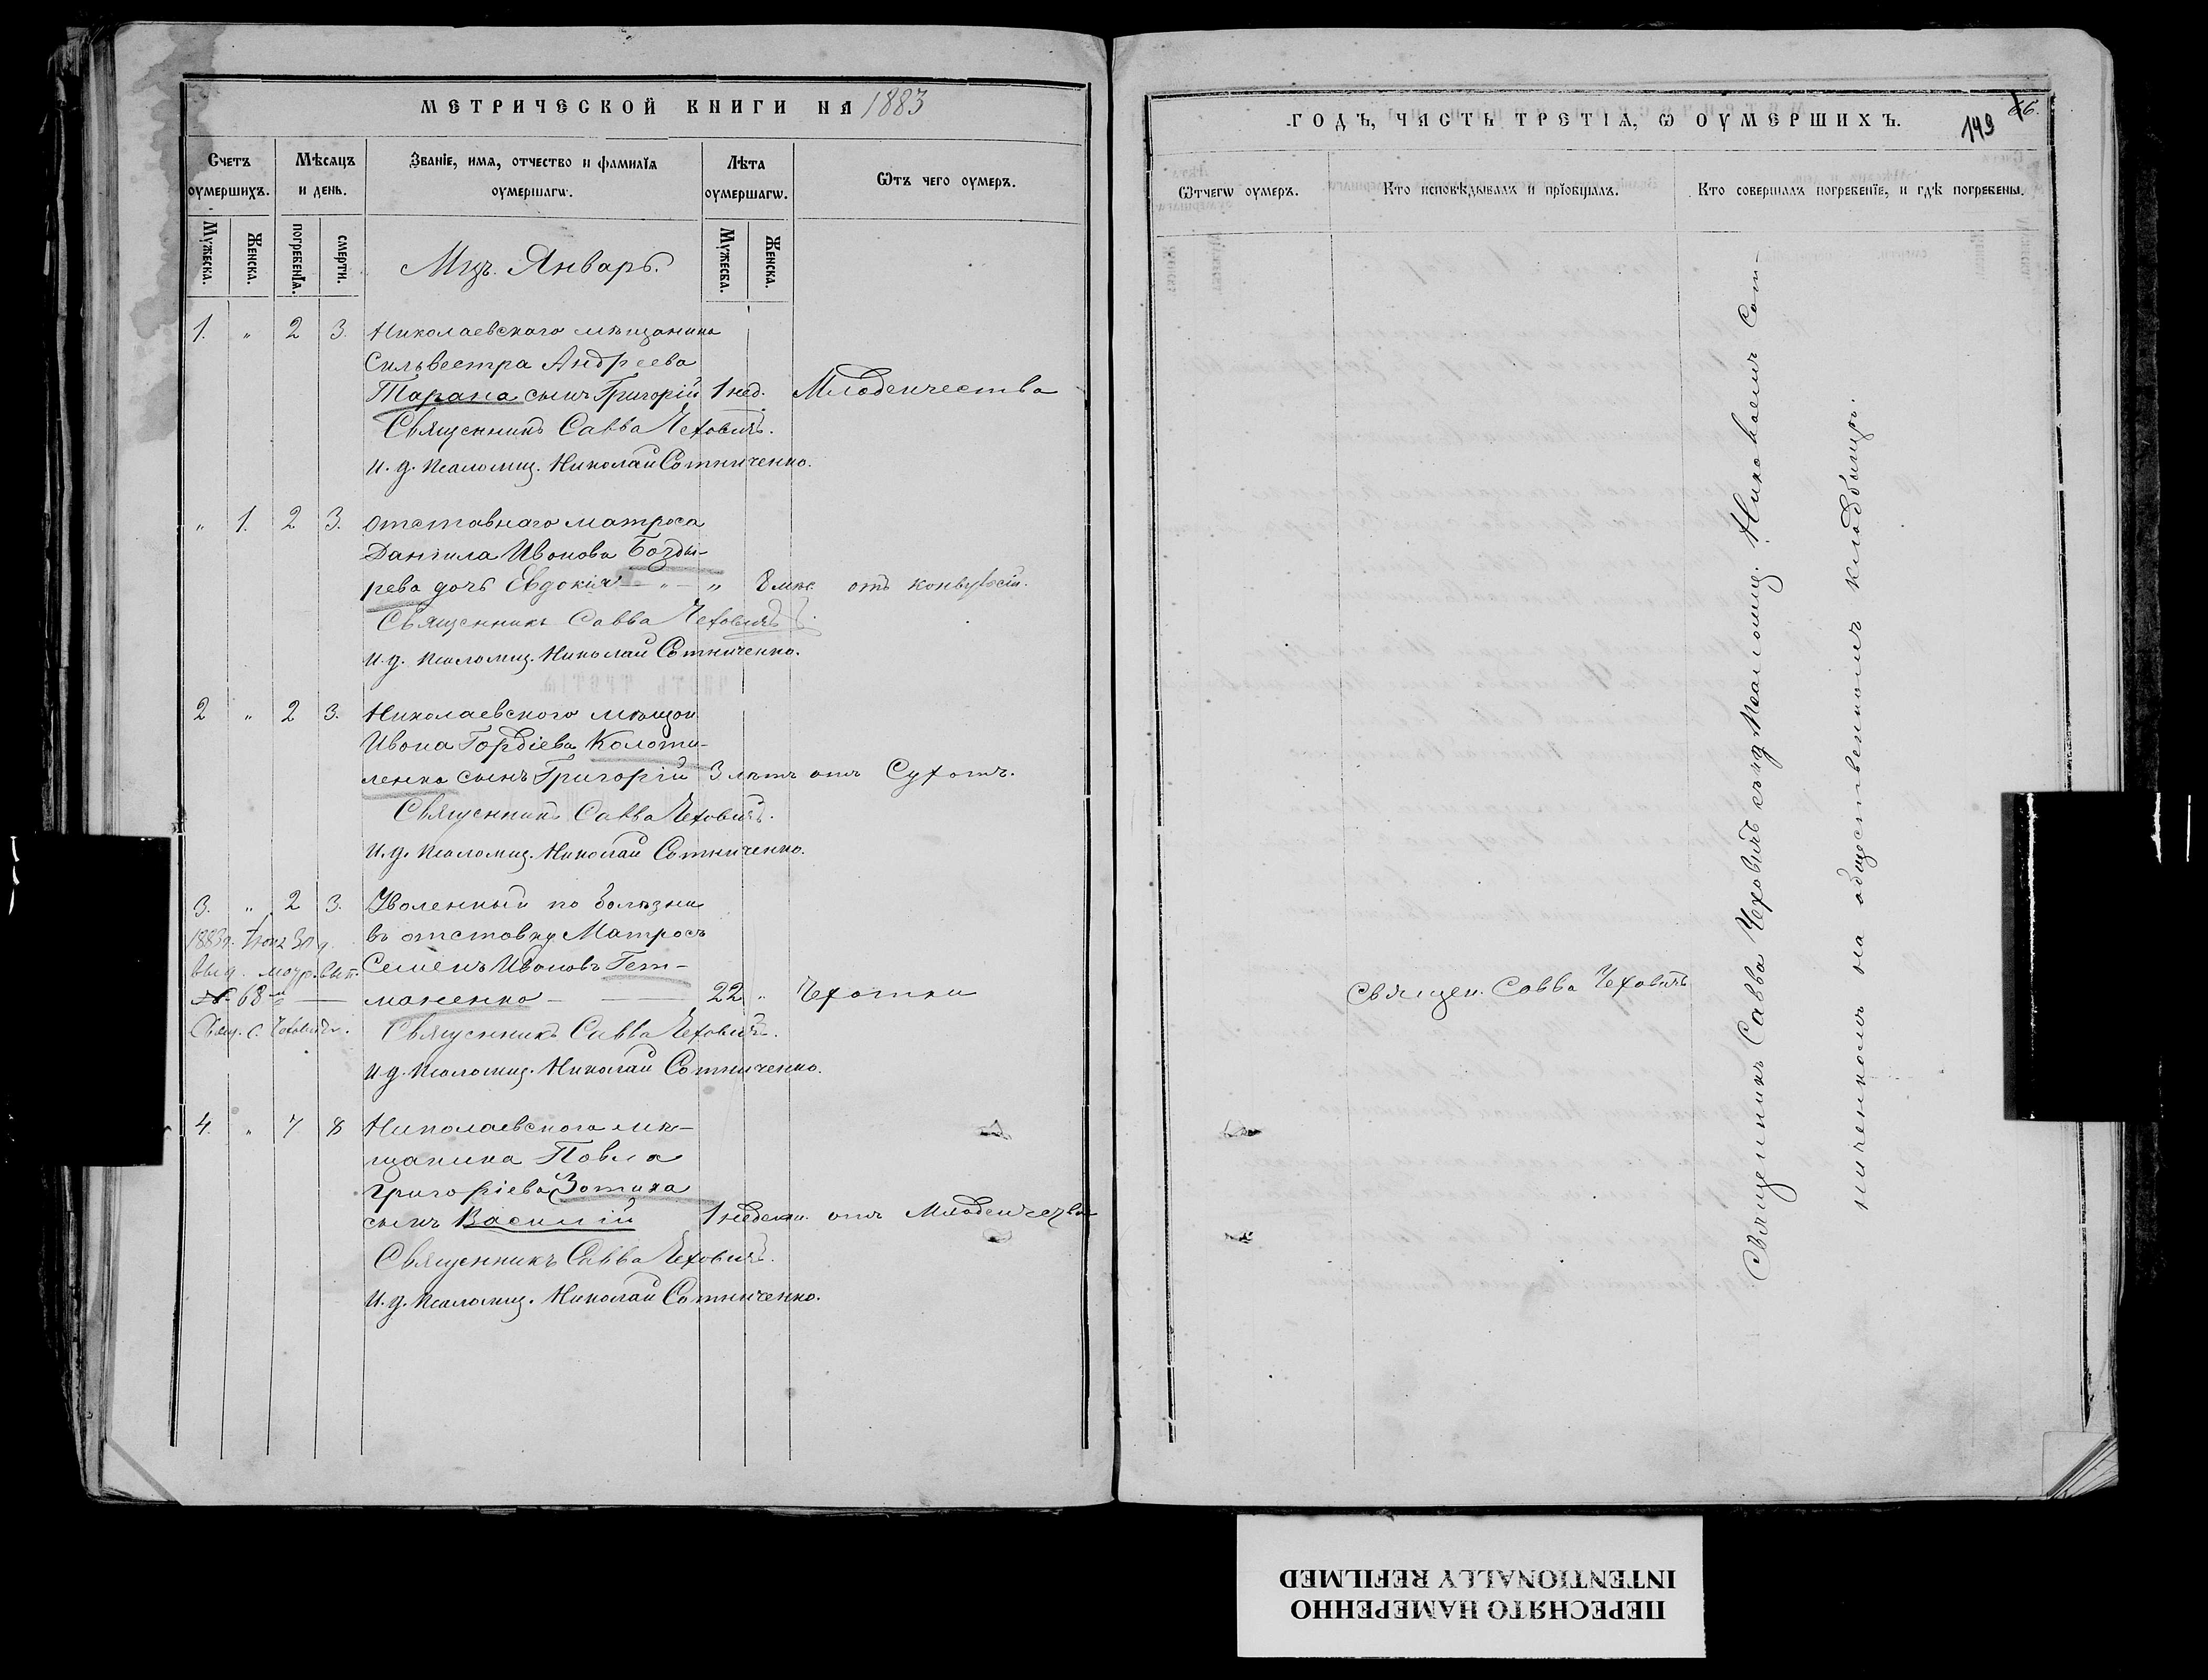 МЕТРИЧЕСКОЙ КНИГИ НА 1883
Счетъ оумершихъ.
Мѣсяцъ и день.
Званіе, имя, отчество и фамилія оумершагѡ.
Лѣта оумершагѡ.
Ѿтъ чего оумеръ.
Мужеска.
Женска.
погребенія.
смерти.
Мужеска.
Женска.
Мцъ. Январь.
1. " 2 3. Николаевскаго мѣщанина
Сильвестра Андреева
Тарана сынъ Григорій 1 нед. Младенчества
Священникъ Савва Чеховичъ.
И. д. псаломщ. Николай Сотниченко.
" 1. 2 3. Отставнаго матроса
Даніила Иванова Бозды-
рева дочь Евдокія — " — " 8 мѣс. отъ конвульсій.
Священникъ Савва Чеховичъ.
И. д. псаломщ. Николай Сотниченко.
2 " 2 3. Николаевскаго мѣщан.
Ивана Гордіева Колоти-
ленко сынъ Григорій 3 лѣтъ отъ Сухотъ.
Священникъ Савва Чеховичъ.
И. д. псаломщ. Николай Сотниченко.
3. " 2 3. Уволенный по болѣзни
въ отставку Матросъ
Семенъ Ивановъ Гет-
маненко — — 22 " Чахотки
1883 г.
выд. вып.
№ 68
Свящ. С. Чеховичъ.
Священникъ Савва Чеховичъ.
И. д. псаломщ. Николай Сотниченко.
4. " 7 8 Николаевскаго мѣ-
щанина Павла
Григоріева Зотика
сынъ Василій 1 недели. отъ Младенчества
Священникъ Савва Чеховичъ.
И. д. псаломщ. Николай Сотниченко.
ГОДЪ, ЧАСТЬ ТРЕТІЯ, Ѡ ОУМЕРШИХЪ.
149
66.
Ѿтчегѡ оумеръ.
Кто исповѣдывалъ и пріобщалъ.
Кто совершалъ погребеніе, и гдѣ погребены.
Священ. Савва Чеховичъ
Священникъ Савва Чеховичъ съ и д псаломщ. Николаемъ Сот-
ниченкомъ на общественномъ кладбищѣ.
ПЕРЕСНЯТО НАМЕРЕННО
INTENTIONALLY REFILMED